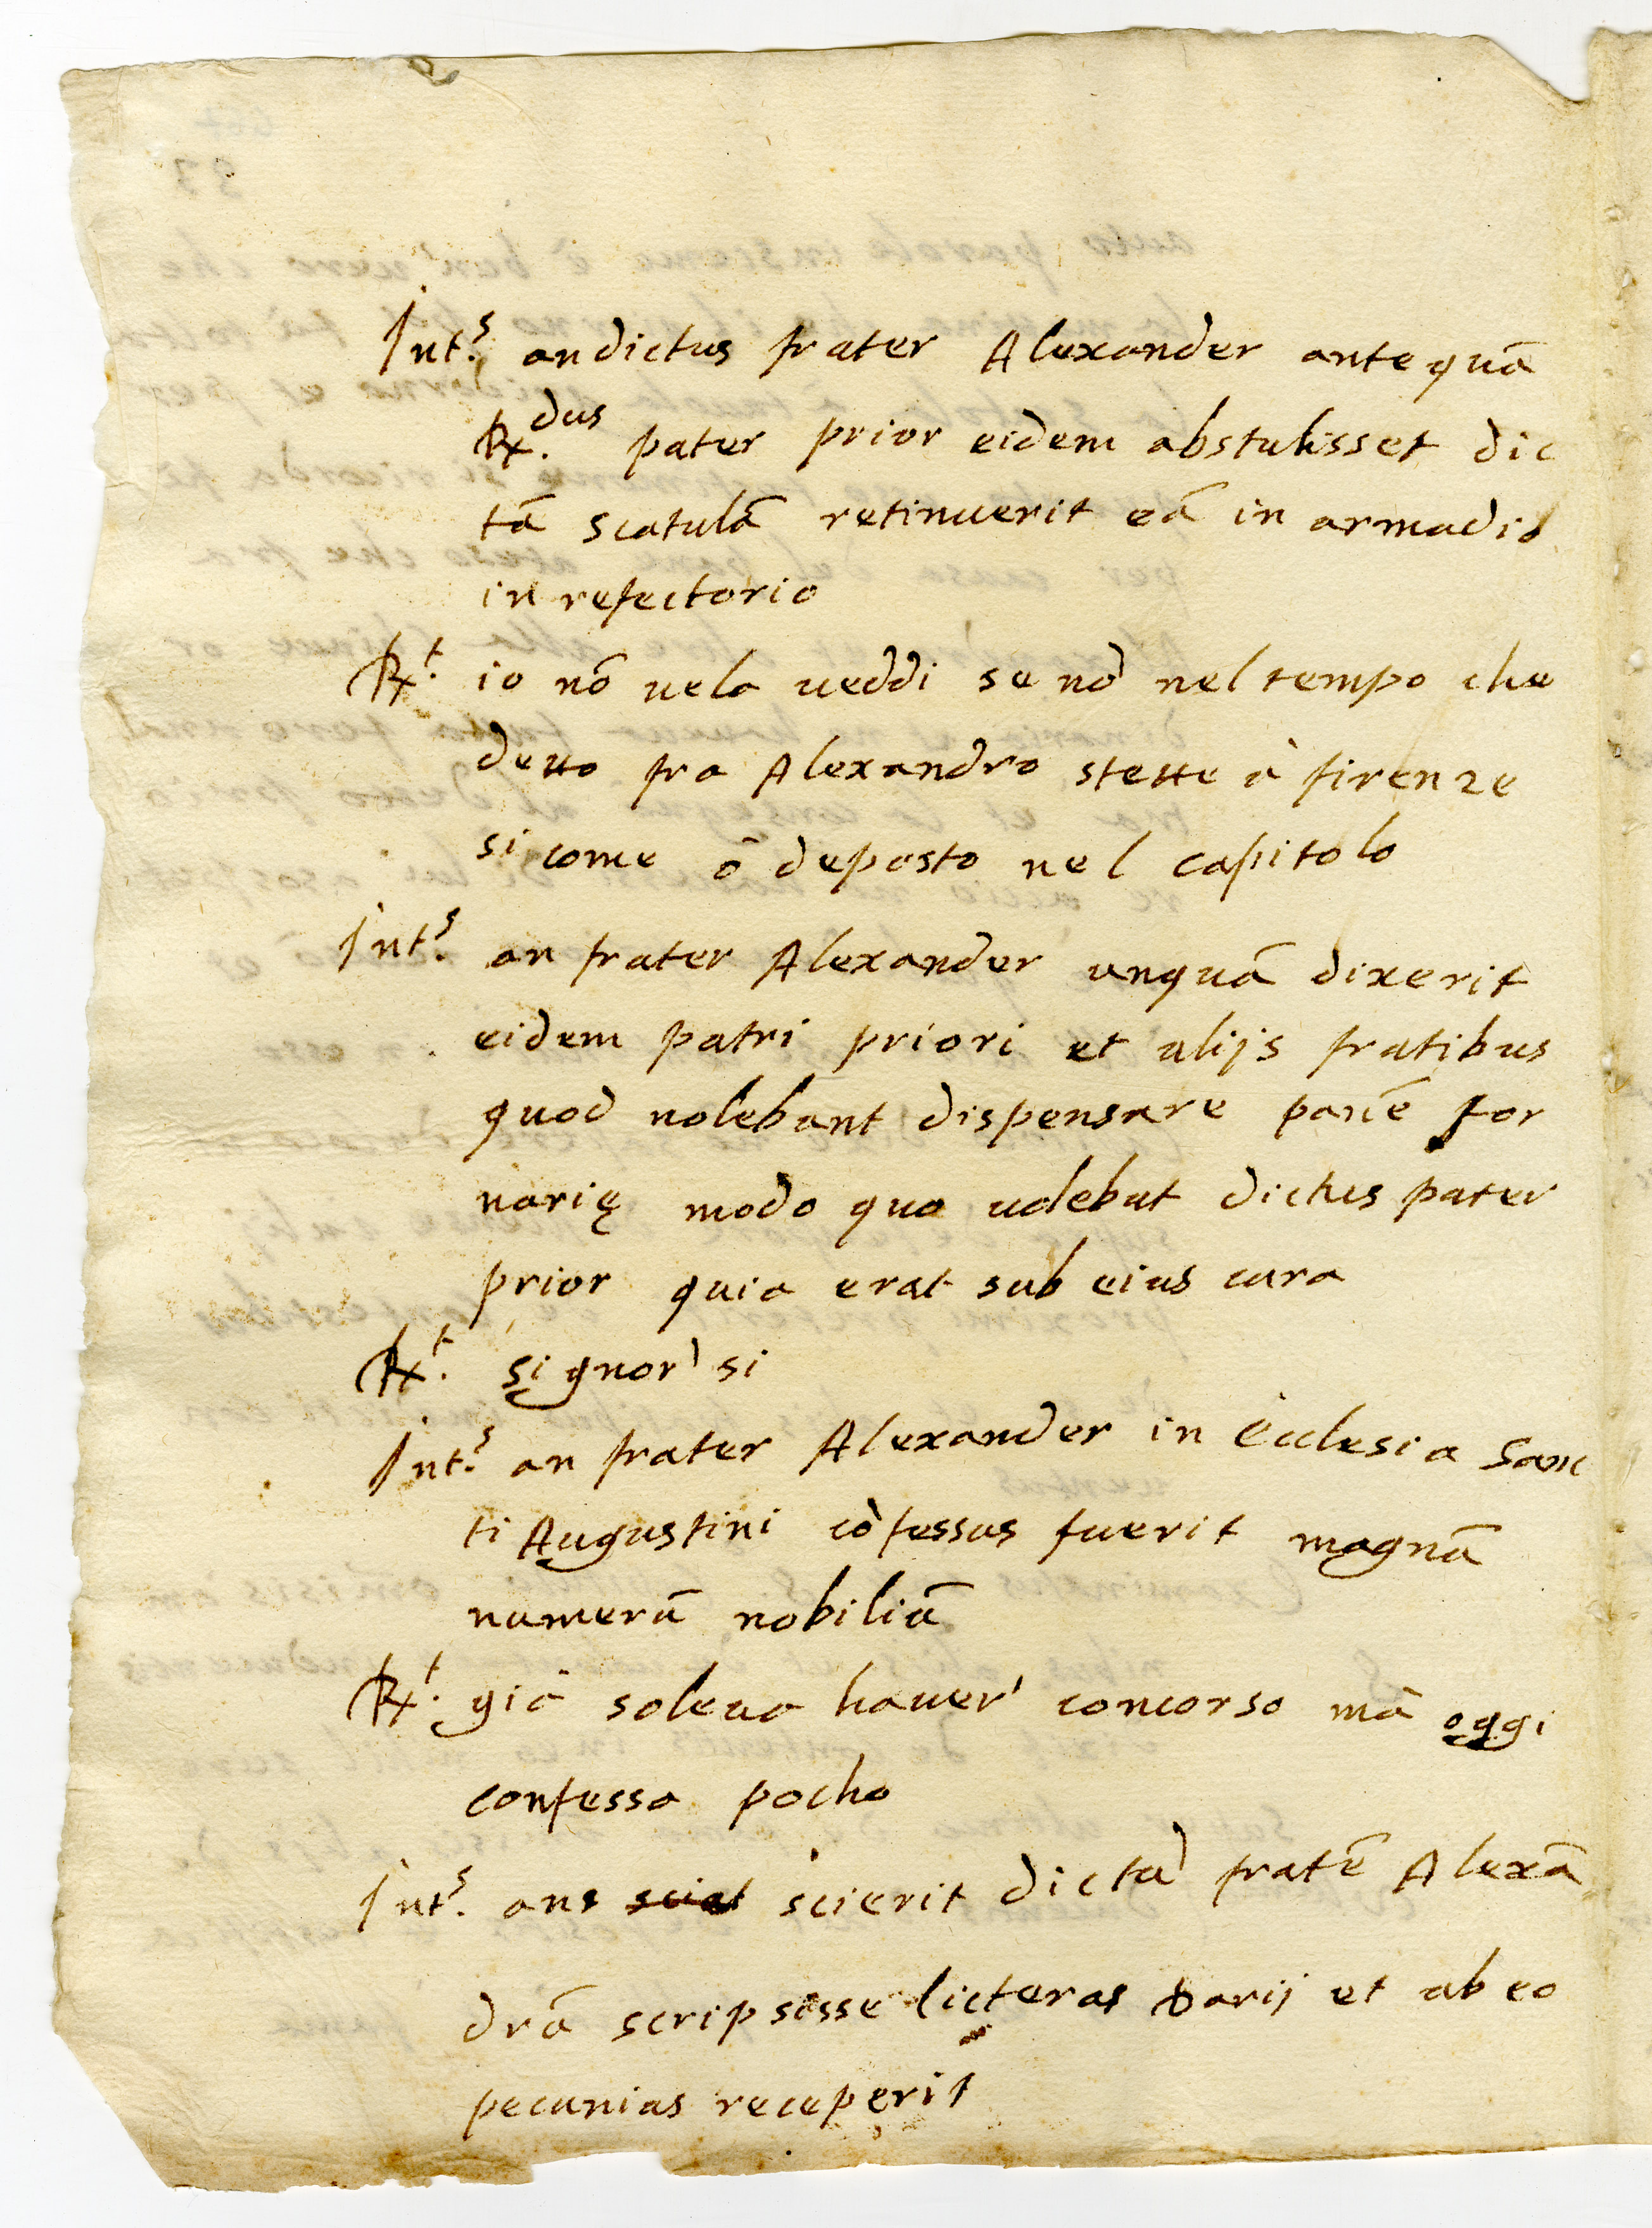 Int.s an dictus frater Alexander antequã
R.dus pater prior eidem abstulisset dic
tã scatulã retinuerit eã in armadio
in refectorio
R.t io nõ vela ueddi se nõ nel tempo che
detto fra Alexandro stette à firenze
si come ò deposto nel capitolo
Int.s an frater Alexander unquã dixerit
eidem patri priori et alijs fratibus
quod nolebant dispensare panẽ for
narię modo quo uolebat dictus pater
prior quia erat sub eius cura
R.t signor' si
Int.s an frater Alexander in Ecclesia Sanc
ti Augustini cõfessus fuerit magnũ
numerũ nobiliũ
R.t già soleua hauer' concorso mà oggi
confessa pocho
Int.s ans sciat scierit dictũ fratẽ Alexã
drũ scripsisse licteras Darij et ab eo
pecunias receperit